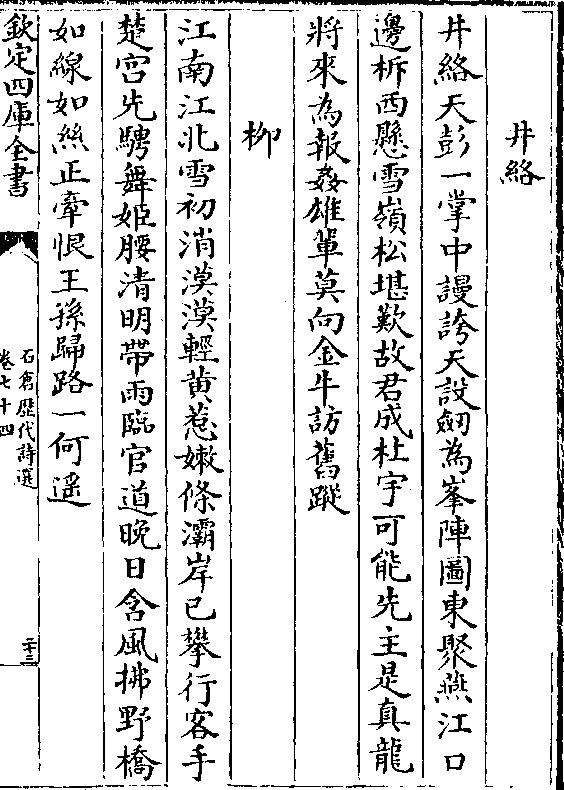 井絡
井絡天彭一掌中謾誇天設劒為峯陣圖東聚燕江口
邊柝西懸雪嶺松堪歎故君成杜宇可能先主是真龍
將來為報姦雄輩莫向金牛訪舊蹤
柳
江南江北雪初消漠漠輕黄惹嫩條灞岸已攀行客手
楚宫先騁舞姬腰清明帶雨臨官道晚日含風拂野橋
如線如絲正牽恨王孫歸路一何遥
欽定四庫全書
石倉歴代詩選
卷七十四
二十三